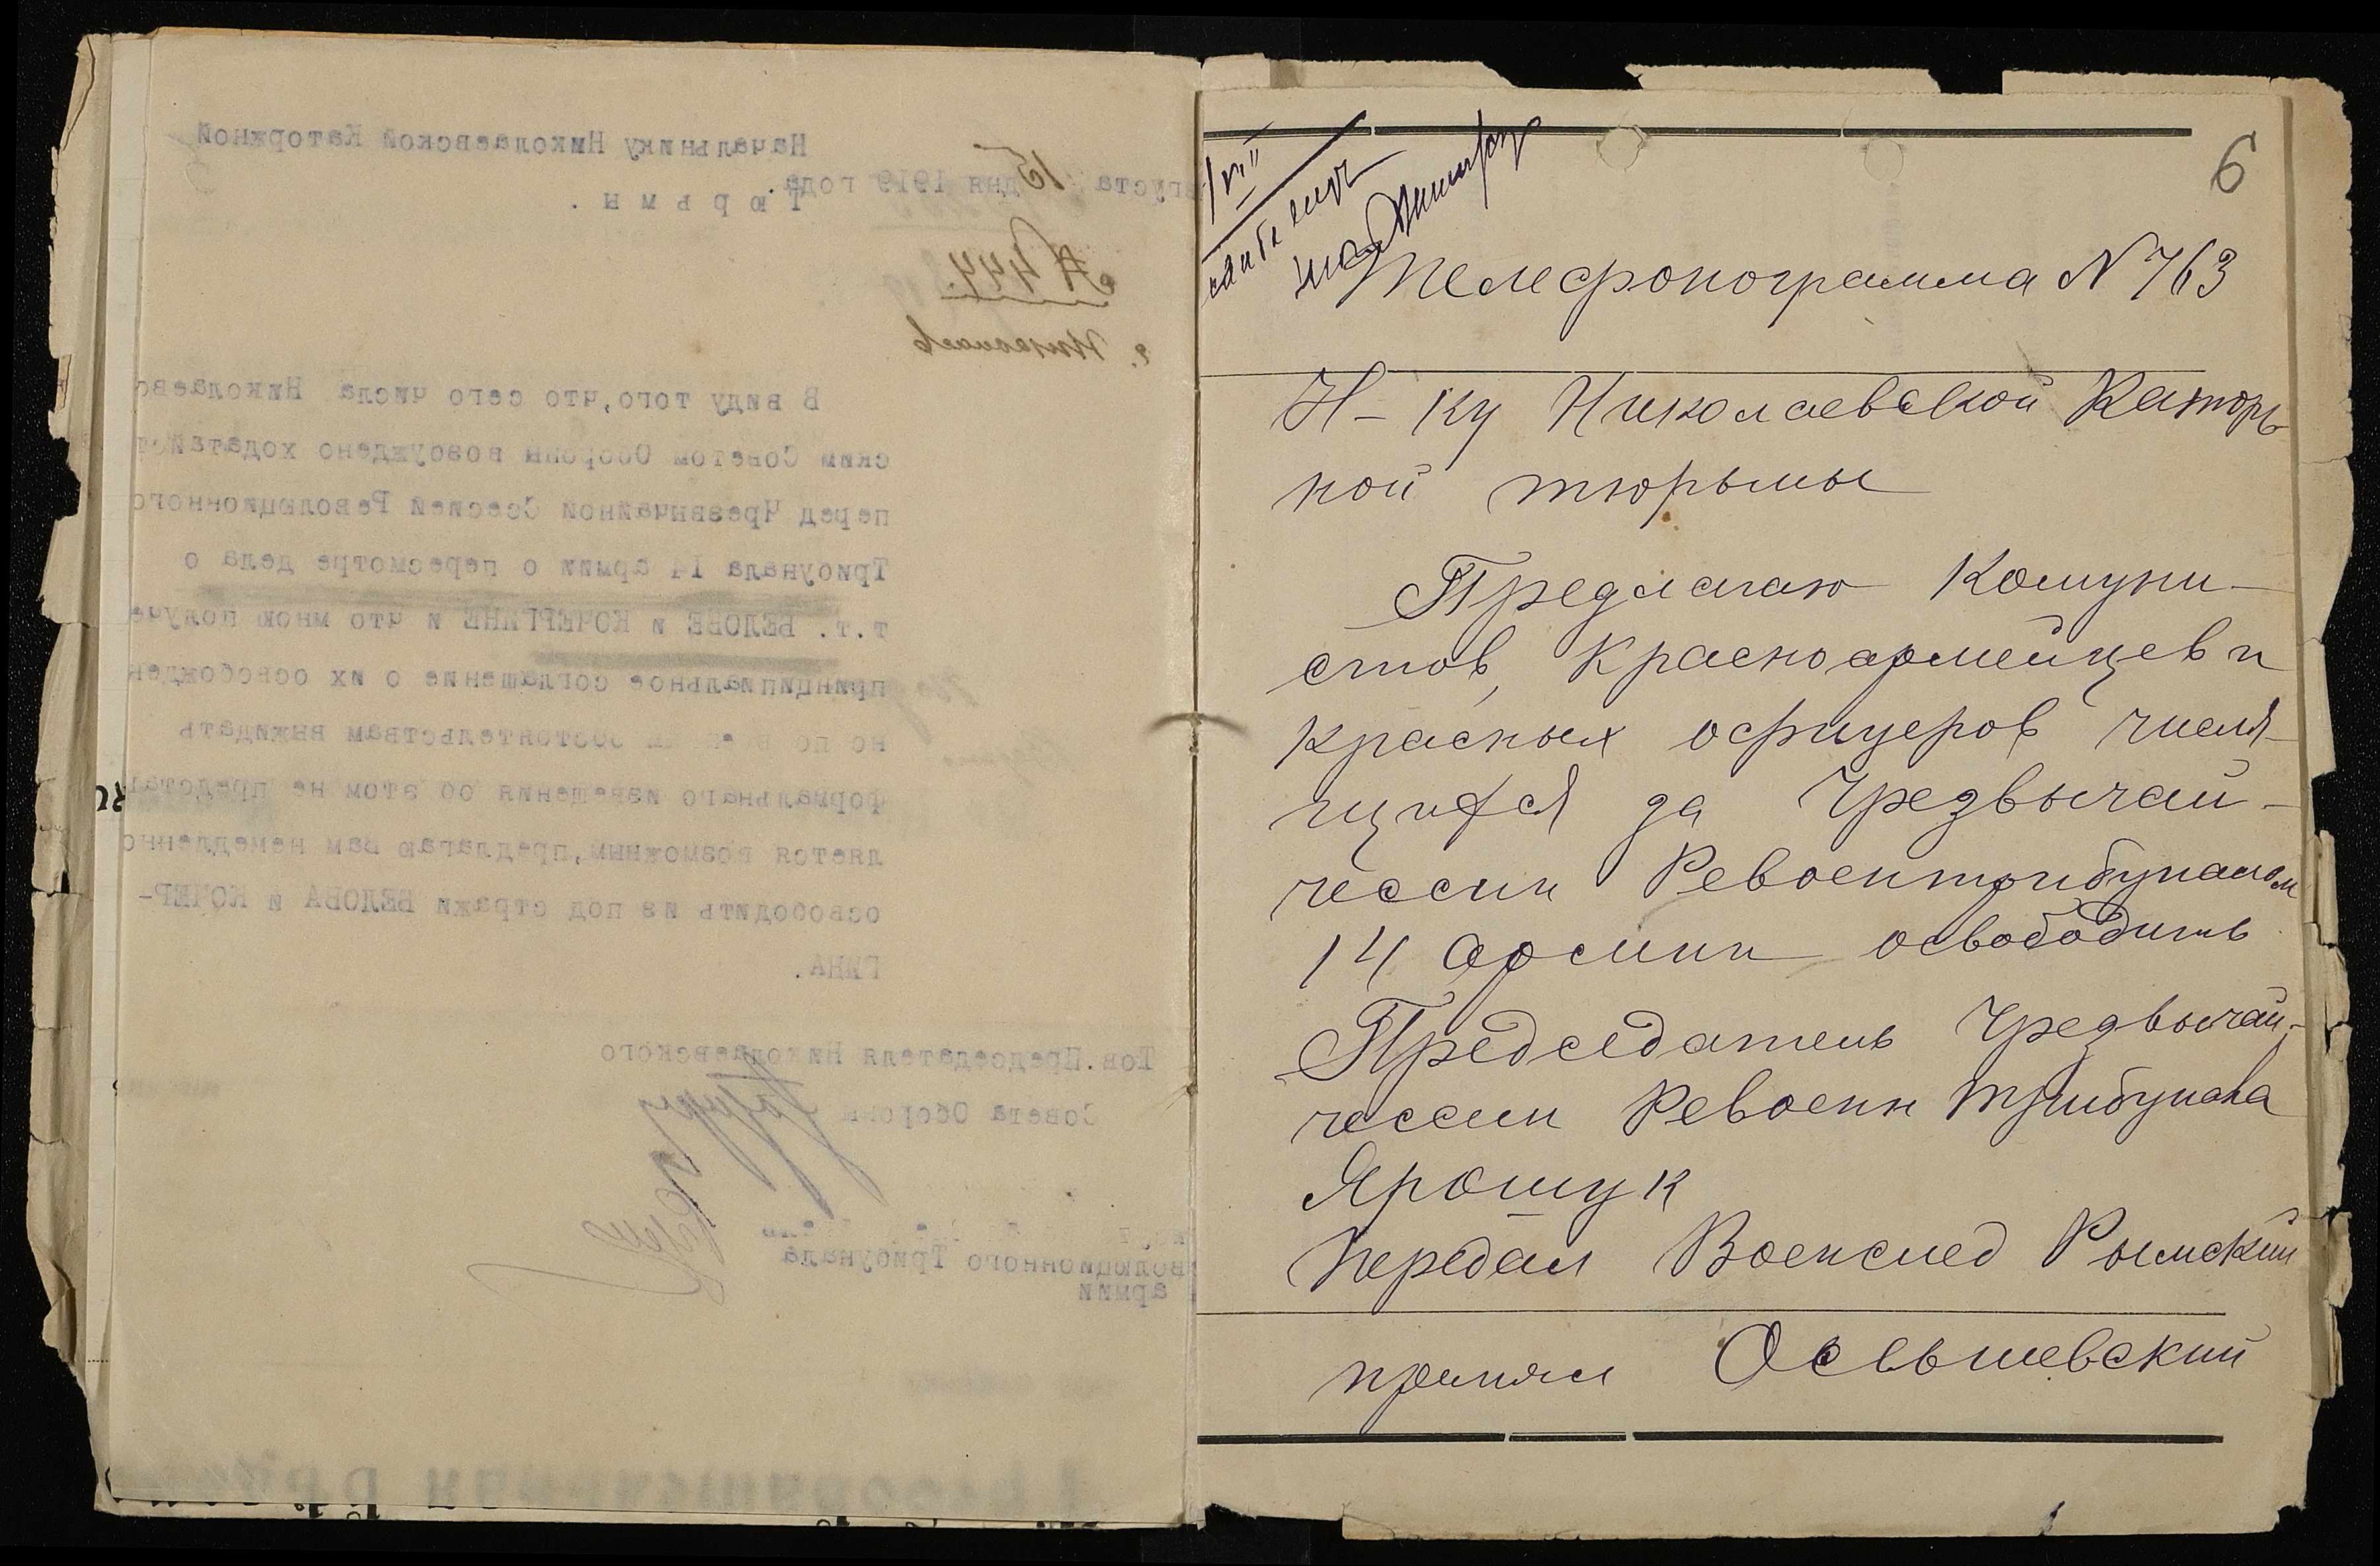 Начальнику Николаевской Каторжной
густа 15 дня 1919 года.
Тюрьмы.
№ 444.
г. Николаев
В виду того, что сего числа Николаев
ским Советом Обороны возбуждено ходатай
перед Чрезвычайной Сессией Революционного
Трибунала 14 армии о пересмотре дела о
т.т. БЕЛОВЕ и КОЧЕРГИНЕ и что мною получе
принципиальное соглашение о их освобожден
но по обстоятельствам выжидать
формального извещения об этом не предстa
ляется возможным, предлагаю Вам немедленно
освободить из под стражи БЕЛОВА и КОЧЕР-
ГИНА.
Тов. Председателя Николаевского
Совета Обороны
волюционного Трибунала
армии
6
Телефонограмма N 763
Н-ку Николаевской Каторж
ной тюрьмы
Предлагаю Комуни-
стов, Красноармейцев и
красных офицеров числя-
щихся за Чрезвычай-
чессии Ревоентрибуналом
14 армии освободить
Председатель Чрезвычай-
чессии Ревоенн Трибунала
Ярошук
Передал Военслед Рымский
принял Осевшевский